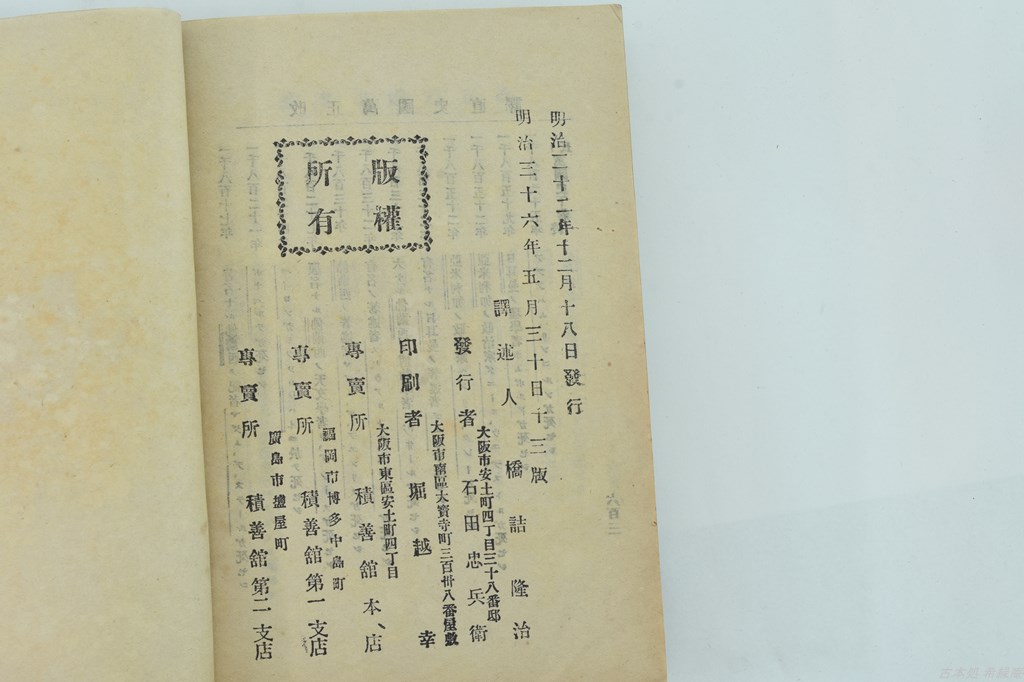 明治二十二年十二月十八日發行
明治三十六年五月三十日十三版
譯述人 橋詰隆治
大阪市安土町四丁目三十八番邸
發行者 石田忠兵衛
大阪市南區大寶寺町三百卅八番屋敷
印刷者 堀越幸
大阪市東區安土町四丁目
專賣所 積善舘本店
福岡市博多中島町
專賣所 積善舘第一支店
廣島市播屋町
專賣所 積善舘第二支店
版權
所有